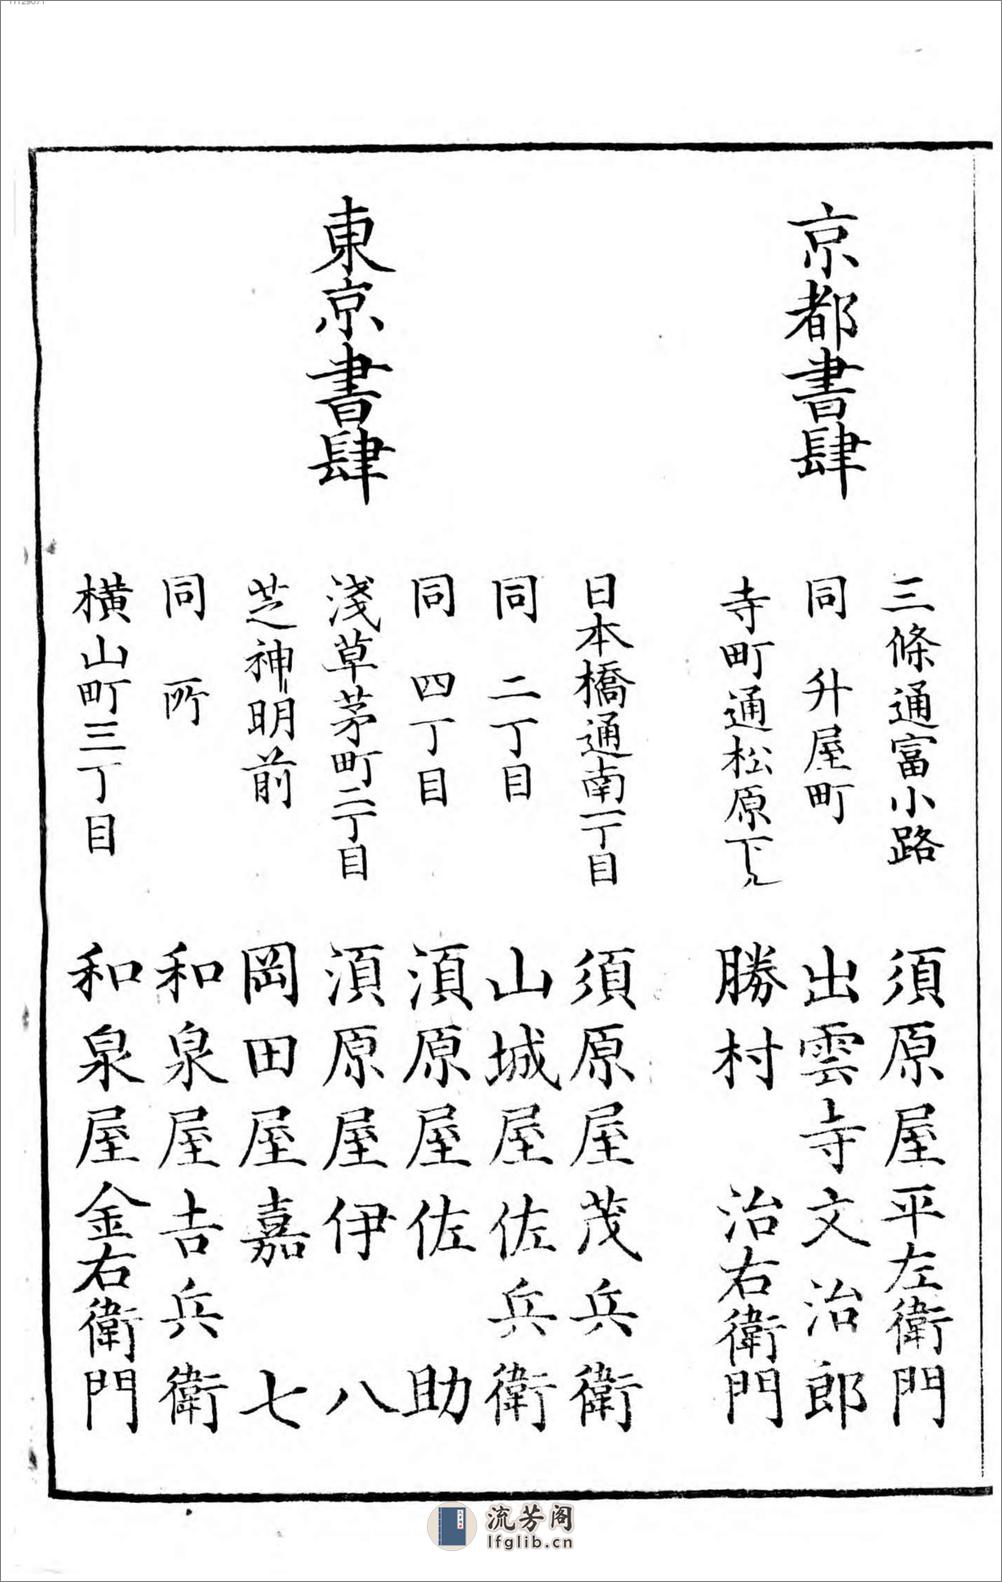 京都書肆
三條通富小路 須原屋平左衛門
同 升屋町 出雲寺文治郎
寺町通松原下ル 勝村治右衛門
東京書肆
日本橋通南一丁目 須原屋茂兵衛
同 二丁目 山城屋佐兵衛
同 四丁目 須原屋佐助
淺草茅町二丁目 須原屋伊八
芝神明前 岡田屋嘉七
同 所 和泉屋吉兵衛
横山町三丁目 和泉屋金右衛門
流芳阁
lfglib.cn